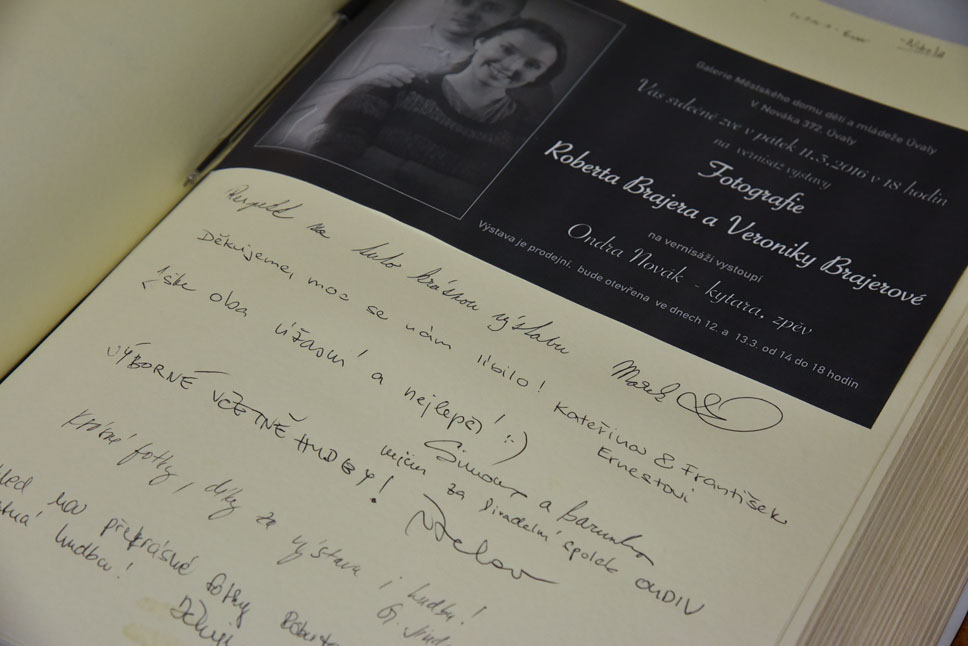 Nikola
Galerie Městského domu dětí a mládeže Úvaly
V. Nováka 372, Úvaly
Vás srdečně zve v pátek 11.3. 2016 v 18 hodin
na vernisáž výstavy
Fotografie
Roberta Brajera a Veroniky Brajerové
na vernisáži vystoupí
Ondra Novák - kytara, zpěv
Výstava je prodejní, bude otevřena ve dnech 12. a 13.3. od 14 do 18 hodin
Respekt za tuto krásnou výstavu Marek
Děkujeme, moc se nám líbilo! Kateřina & František
Ernestovi
Jste oba úžasní a nejlepší! :-)
Simona a Barunka
za divadelní spolek OUDIV
VÝBORNÉ VČETNĚ HUDBY! Václav
Krásné fotky, díky za výstavu i hudbu!
moc překrásné fotky
hudba!
Děkuji